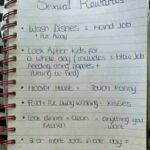 Sexual Rewards
• Wash Dishes = Hand Job
+ Put Away
• Look After kids for
a whole day (includes = blow Job
feeding doing nappies +
Putting to Bed)
• Hoover House = Touch Fanny
• Fold + Put away washing - kisses
• Cook dinner + Clean = anything you
Kitchen want
• 2 or more Jobs in one day =